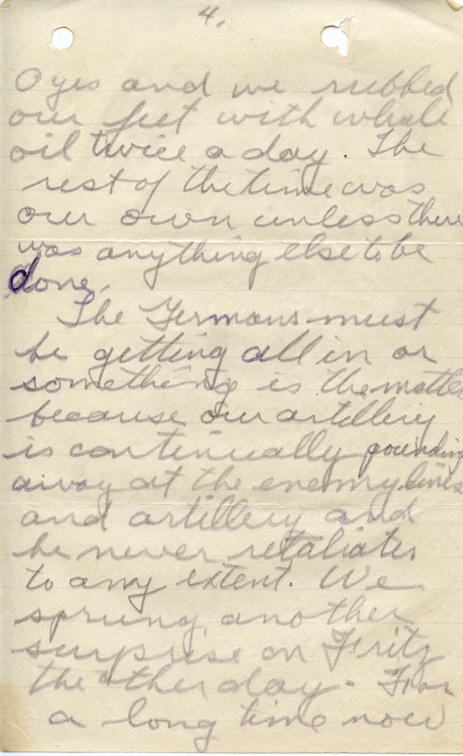 4.
O yes and we rubbed
our feet with whale
oil twice a day. The
rest of the time was
our own unless there
was anything else to be
done.
The Germans must
be getting all in or
something is the matter
because our artillery
is continually pounding
away at the enemy lines
and artillery and
he never retaliates
to any extent. We
sprung another
surprise on Fritz
the other day - For
a long time now